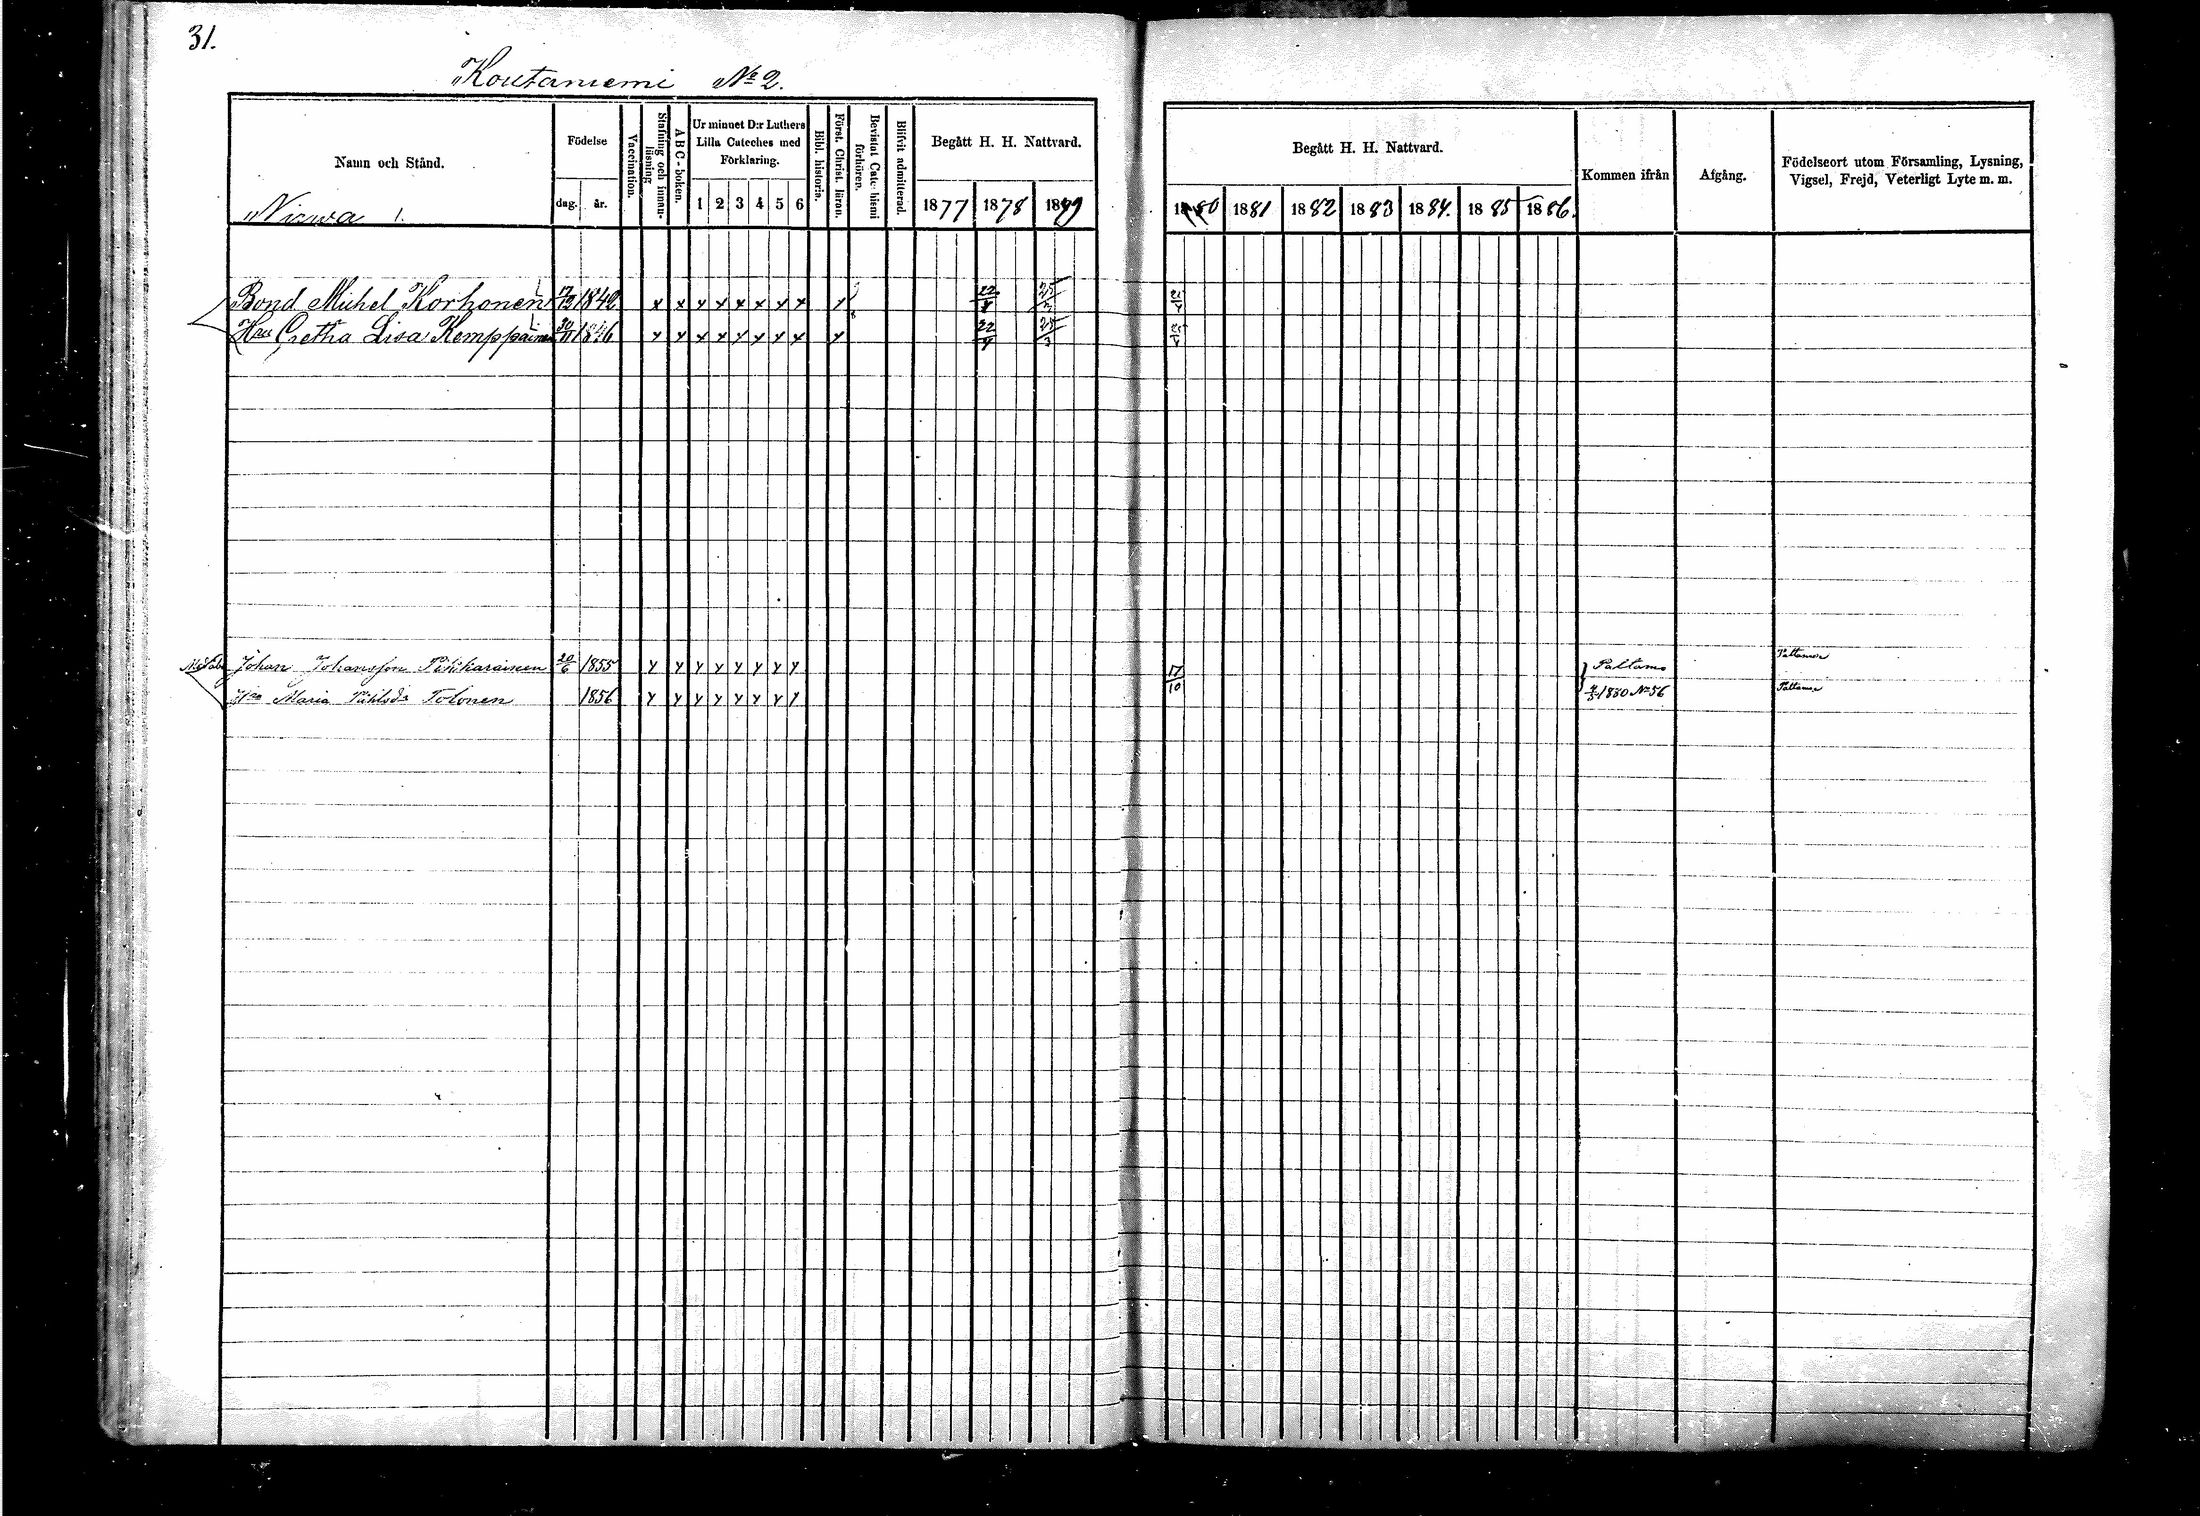 31.
Koutaniemi No 2.
Namn och Stånd.
Nirwa 1.
Födelse
dag. år.
Vaccination.
Stafning och innanläsning
ABC-boken.
Ur minnet D:r Luthers Lilla Cateches med Förklaring.
1 2 3 4 5 6
Bibl. historia.
Först. Christ. läran.
Bevistat Catechismi förhören.
Blifvit admitterad.
Begått H. H. Nattvard.
1877 1878 1879
Begått H. H. Nattvard.
1880 1881 1882 1883 1884. 1885 1886.
Kommen ifrån
Afgång.
Födelseort utom Församling, Lysning, Vigsel, Frejd, Veterligt Lyte m. m.
Bond Michel Korhonen 17/12 1842 x x x x x x x x x 22/4 25/3
Hu Gretha Lisa Kemppainen 30/11 1846 x x x x x x x x x 22/4 25/3
Johan Johansson Pikkarainen 20/6 1855 x x x x x x x x 17/10 Paltamo Paltamo
Maria Tolonen 1856 x x x x x x x x 1880 No 56 Paltamo